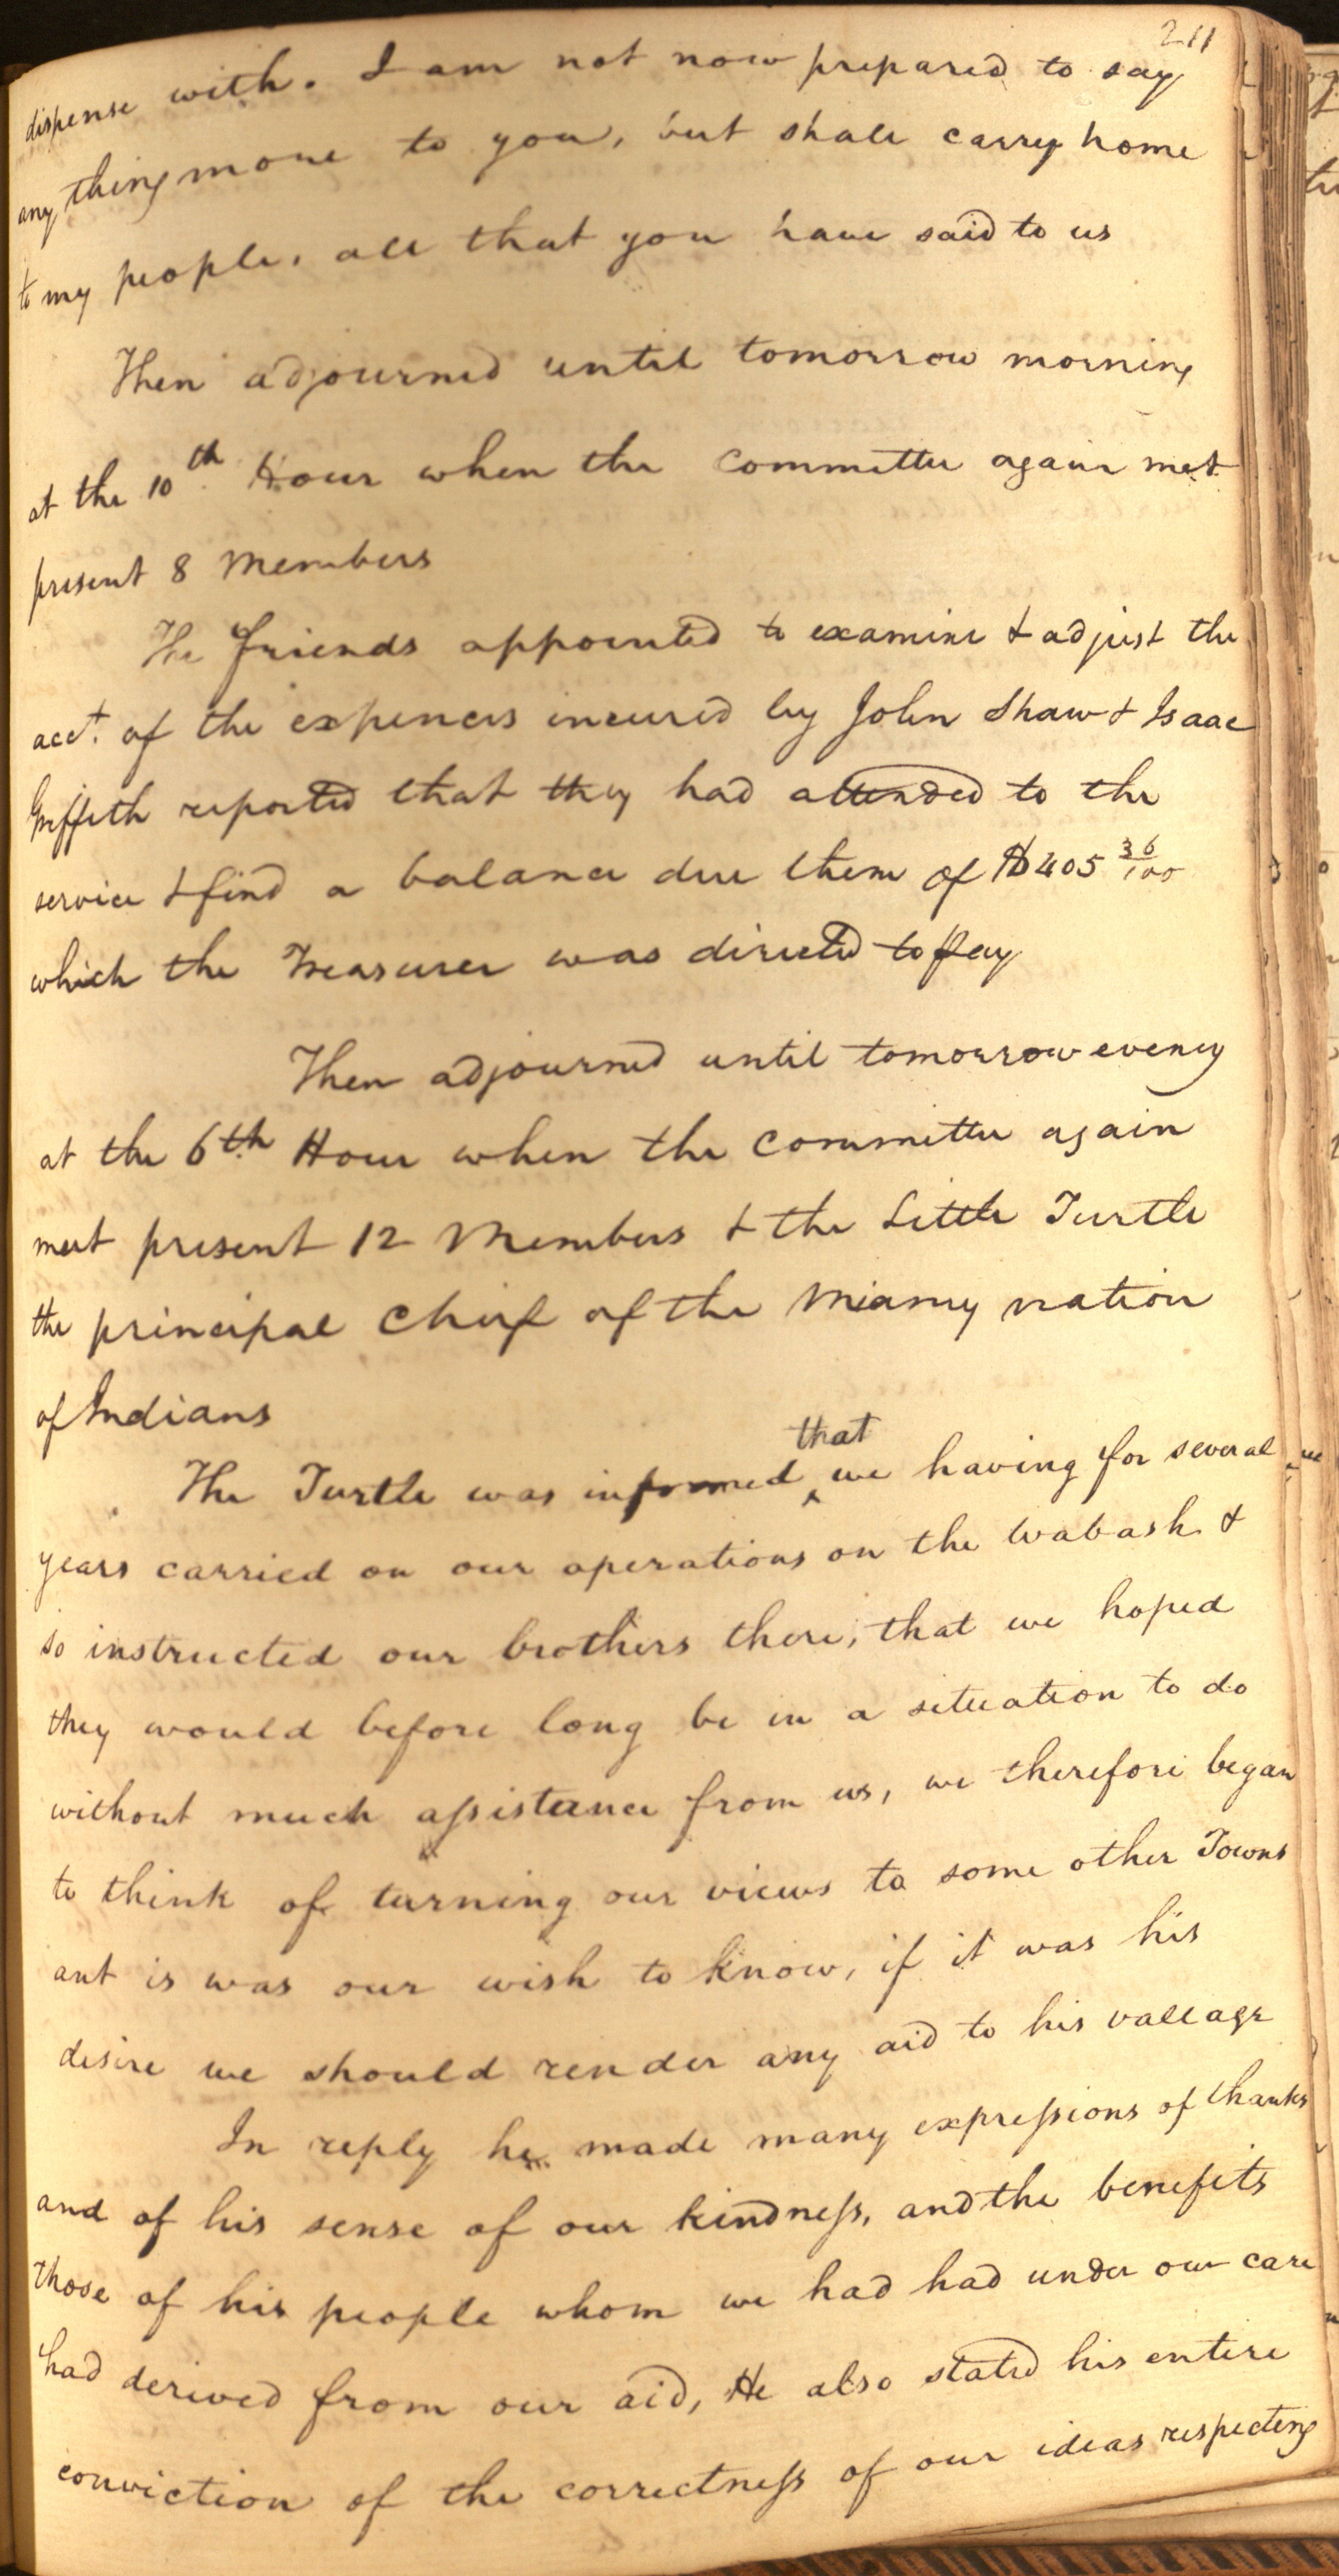 211
dispense with. I am not now prepared to say
any thing more to you, but shall carry home
to my people, all that you have said to us
Then adjourned until tomorrow morning
at the 10th Hour when the Committee again met
present 8 Members
The friends appointed to examine & adjust the
acct. of the expences incured by John Shaw & Isaac
Griffith reported that they had attended to the
service & find a balance due them of $405 36/100
which the Treasurer was directed to pay
Then adjourned until tomorrow eveng
at the 6th Hour when the Committee again
meet present 12 Members & the Little Turtle
the principal Chief of the Miamy nation
of Indians
The Turtle was informed that we having for several
years carried on our operations on the Wabash &
so instructed our brothers there, that we hoped
they would before long be in a situation to do
without much assistance from us, we therefore began
to think of turning our views to some other Towns
ant is was our wish to know, if it was his
desire we should render any aid to his vallage
In reply he made many expressions of thanks
and of his sense of our kindness, and the benefits
those of his people whom we had had under our care
had derived from our aid, He also stated his entire
conviction of the correctness of our ideas respecting